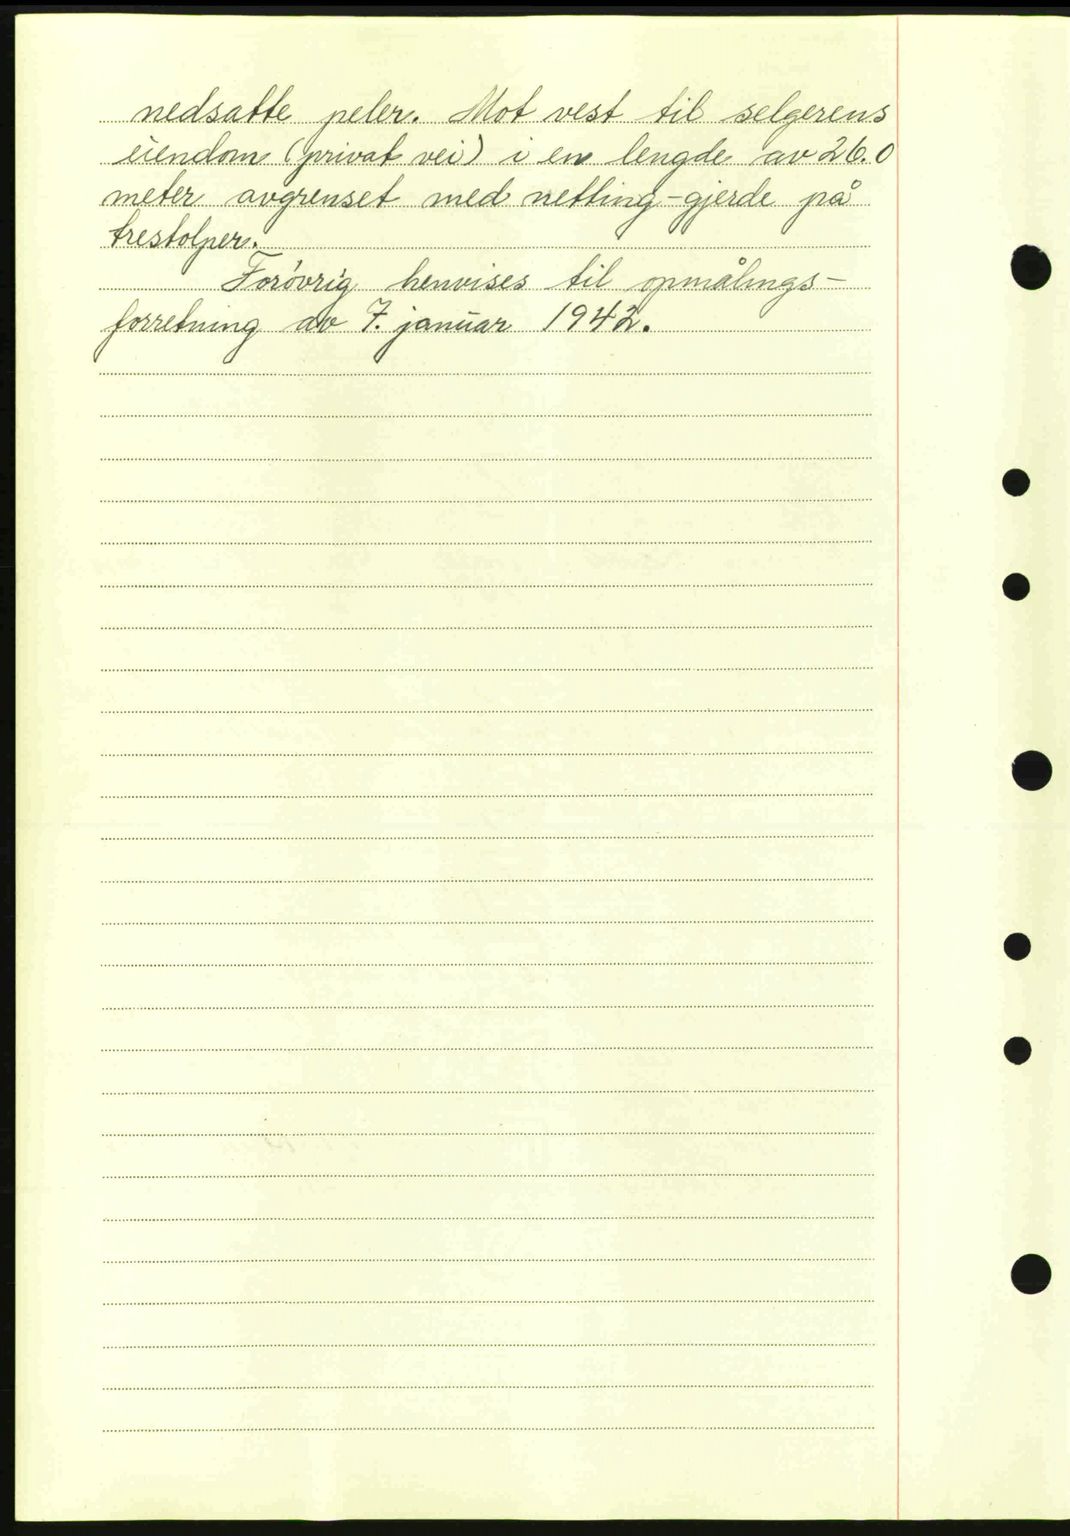 nedsatte peler. Mot vest til selgerens
eiendom (privat vei) i en lengde av 26.0
meter avgrenset med netting-gjerde på
trestolper.
Forøvrig henvises til opmålings-
forretning av 7. januar 1942.